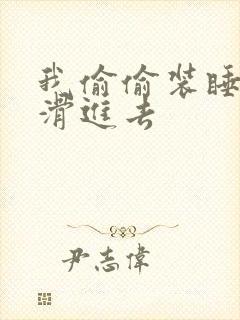 我偷偷装睡
滑進去
尹志偉